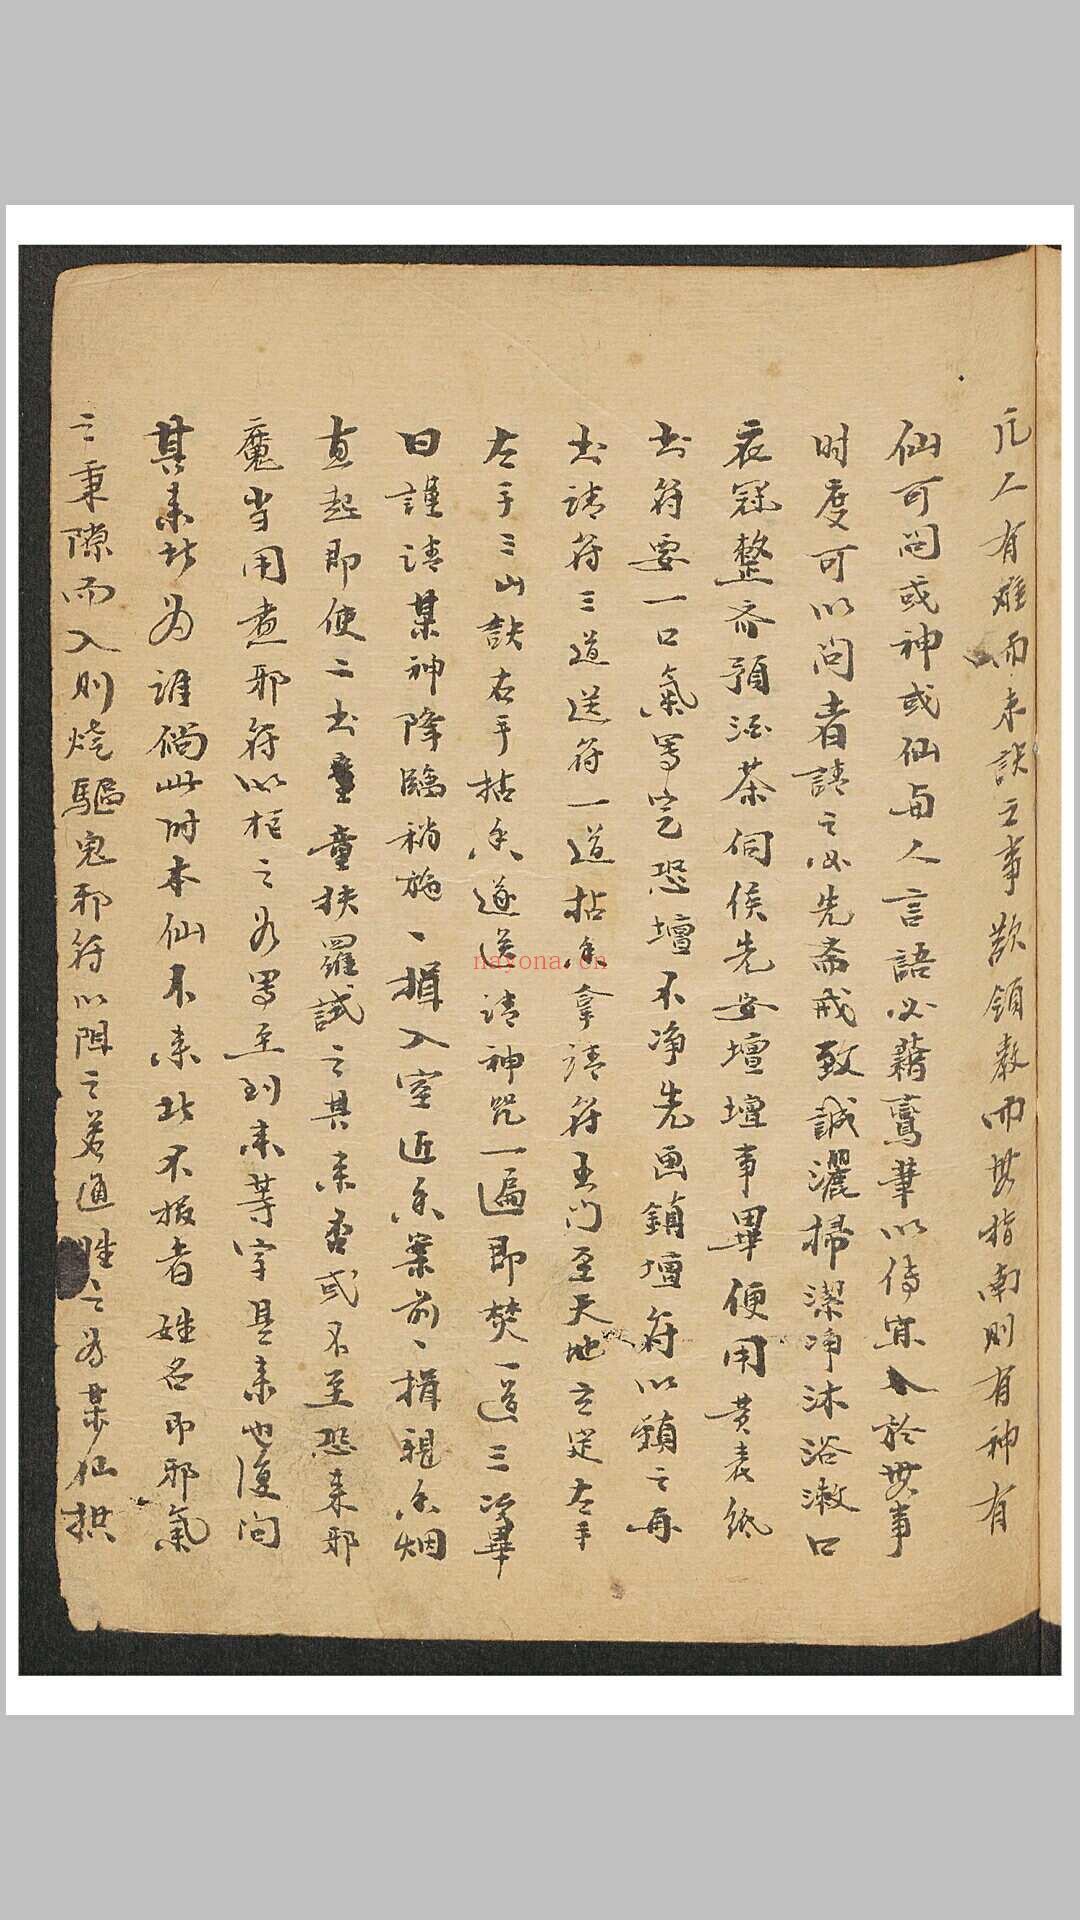 凡人有难而未訣之事歎領教而無指南則有神有
仙可问或神或仙与人言語必藉鸞筆以傳宣入於世事
时度可以问者請之必先斋戒致誠灑掃潔净沐浴漱口
衣冠整齐預酒茶伺候先安壇壇事畢便用黄表紙
书符要一口氣写完恐壇不净先画鎮壇符以鎮之再
书請符三道送符一道拈香拿請符至门至天地立定左手
左手三山訣右手拈香遂送請神咒一遍即焚一道三次畢
曰謹請某神降臨稍施、揖入室近香案前、揖視香烟
直起即使二书童童扶羅試之其来否或不至恐来邪
魔当用煮邪符以柜之若写至到来等字是来也復问
其来此为誰倘此时本仙不来此不报者姓名即邪氣
之乘隙而入則燒驅鬼邪符以阻之若通姓之为某仙拱
nayona.cn